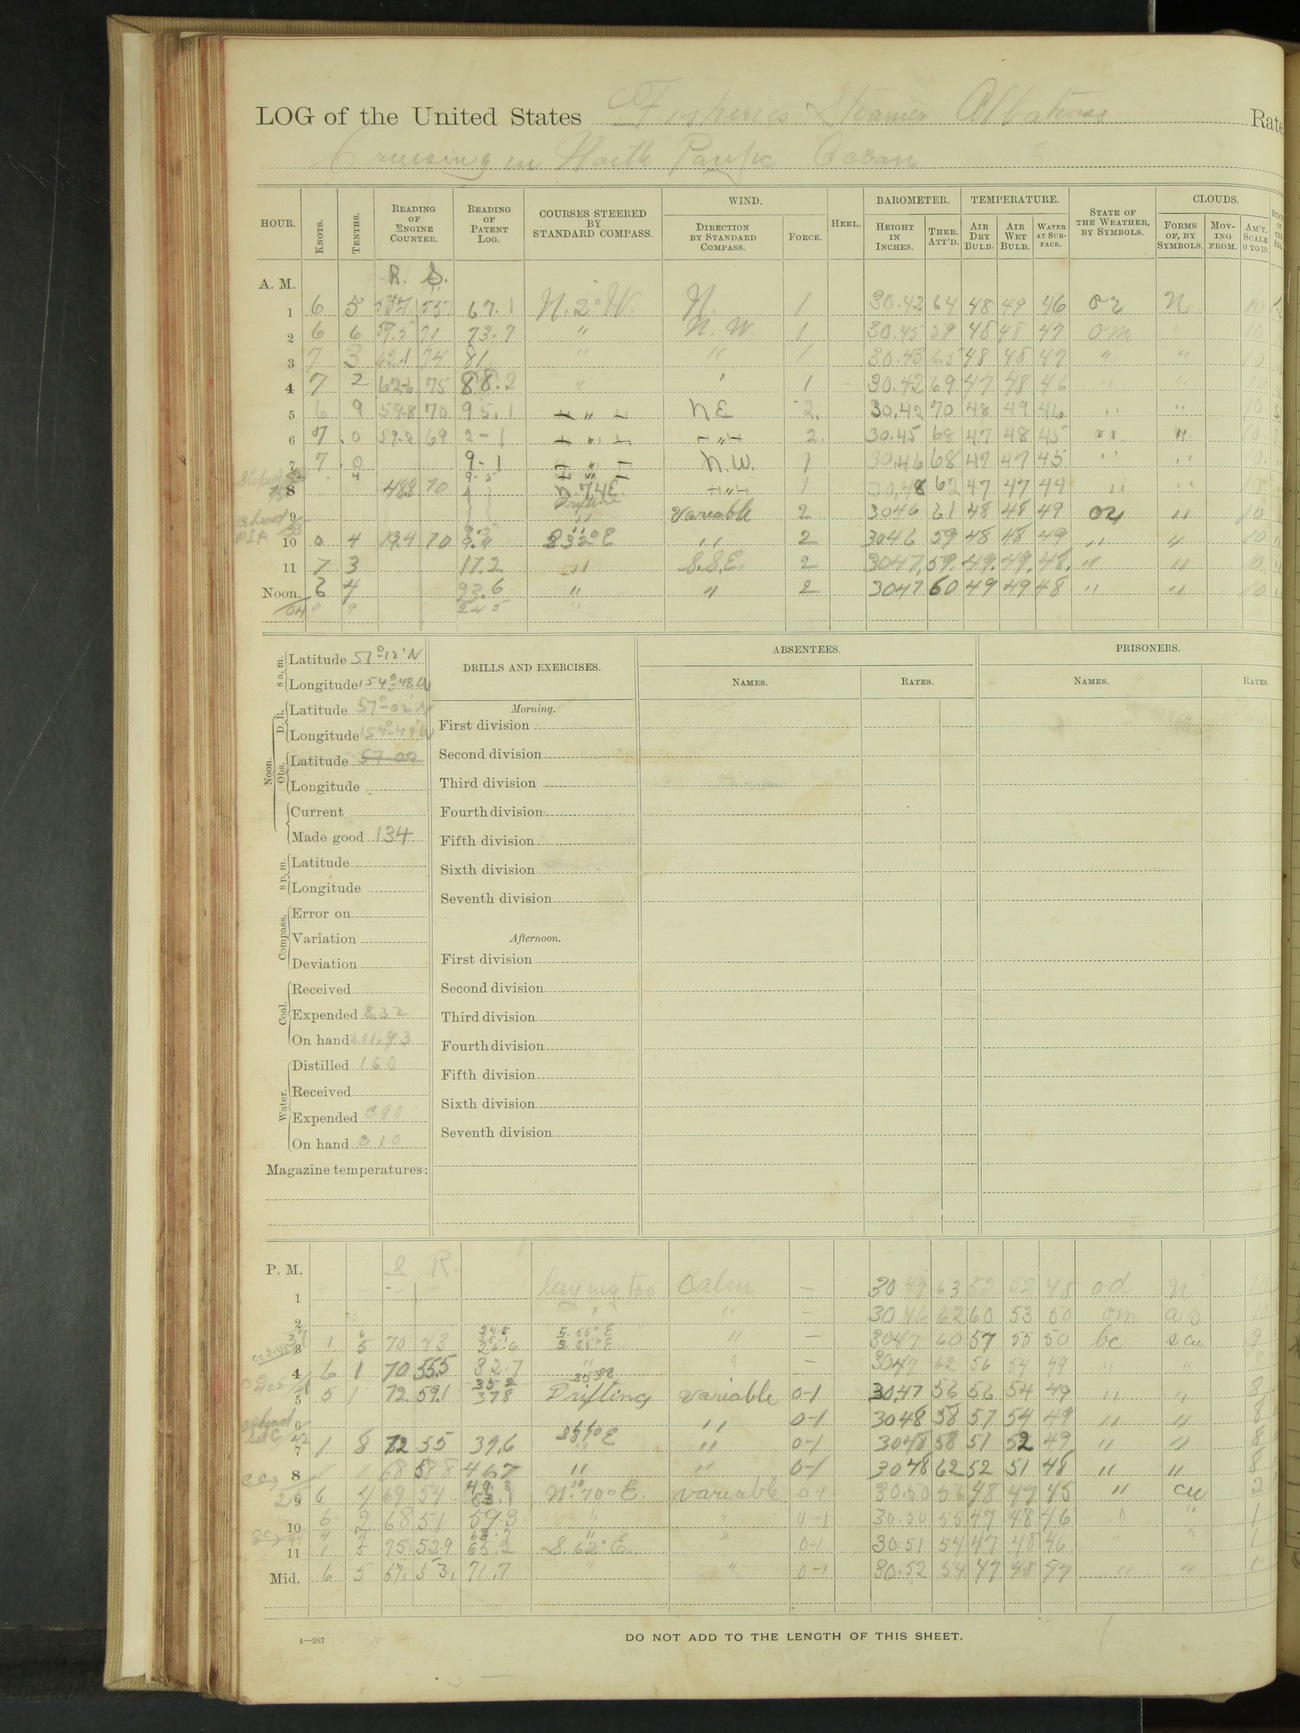 LOG of the United States Fisheries Steamer Albatross Rate
Cruising in North Pacific Ocean
HOUR. KNOTS. TENTHS. READING OF ENGINE COUNTER. READING OF PATENT LOG. COURSES STEERED BY STANDARD COMPASS. WIND. DIRECTION BY STANDARD COMPASS. FORCE. HEEL. BAROMETER. HEIGHT IN INCHES. THER. ATT'D. TEMPERATURE. AIR DRY BULB. AIR WET BULB. WATER AT SURFACE. STATE OF THE WEATHER, BY SYMBOLS. CLOUDS. FORMS OF, BY SYMBOLS. MOVING FROM. AM'T. SCALE 0 TO 10.
A. M. R. S.
1 6 5 67.1 N. 2° W. N. 1 30.42 64 48 49 46 oz N 10
2 6 6 59.5 70 73.7 " N. W. 1 30.45 48 48 47 om " 10
3 7 3 62.1 74 81 " " 1 30.43 65 48 48 47 " " 10
4 7 2 62.6 75 88.2 " " 1 30.42 69 47 48 46 10
5 6 9 59.8 70 95.1 " NE 2. 30.42 70 48 49 46 " " 10
6 7 .0 59.2 69 2-1 " " 2. 30.45 68 47 48 45 " " 10
7 7 .0 9-1 " N.W. 1 30.46 68 47 47 45 " " 10
8 4 48.8 70 9-5 N. 74 E. " 1 30.48 62 47 47 44 " " 10
9 Drifting variable 2 3046 61 48 48 49 oz " 10
10 0 4 19.4 70 S 32° E " 2 3046 59 48 48 49 " " 10
11 7 3 17.2 " S.S.E. 2 3047 59. 49. 49. 48. " " 10
Noon. 6 4 23.6 " " 2 3047 60 49 49 48 " " 10
8 a. m. Latitude 57°-12' N
Longitude 154°-48 W
Noon. D. R. Latitude 57°-02' N
Longitude 154°-48' W
Obs. Latitude 57-02
Longitude
Current
Made good 134
8 p. m. Latitude
Longitude
Compass. Error on
Variation
Deviation
Coal. Received
Expended 8.32
On hand 201.93
Water. Distilled 160
Received
Expended 390
On hand 310
Magazine temperatures:
DRILLS AND EXERCISES.
Morning.
First division
Second division
Third division
Fourth division
Fifth division
Sixth division
Seventh division
Afternoon.
First division
Second division
Third division
Fourth division
Fifth division
Sixth division
Seventh division
ABSENTEES.
NAMES. RATES.
PRISONERS.
NAMES. RATES.
P. M. S. R.
1 laying too Calm — 30 47 63 52 52 48 od N 10
2 " " — 30 46 62 60 53 50 om 10
3 1 5 70 43 26.6 S. 55° E " — 3047 60 57 55 50 bc s.cu 9
4 6 1 70 555 32.7 " " — 3047 62 56 54 49 " "
5 5 1 72 59.1 35.2 37.8 Drifting variable 0-1 30.47 56 56 54 49 " " 8
6 " 0-1 3048 58 57 54 49 " " 8
7 1 8 72 55 39.6 " 0-1 3048 58 51 52 49 " " 8
8 68 58.8 46.7 " " 0-1 3048 62 52 51 48 " " 8
9 6 4 69 54 53.1 N. 70° E. variable 0-1 30.50 56 48 47 45 " cu 2
10 6 2 68 51 59.3 " " 0-1 30.50 55 47 48 46 " " 1
11 5 75 52.9 65.2 S. 62° E. " 0-1 30.51 54 47 48 46 " " 1
Mid. 6 5 67. 53. 71.7 " " 0-1 30.52 54 47 48 47 " " 1
4—287
DO NOT ADD TO THE LENGTH OF THIS SHEET.